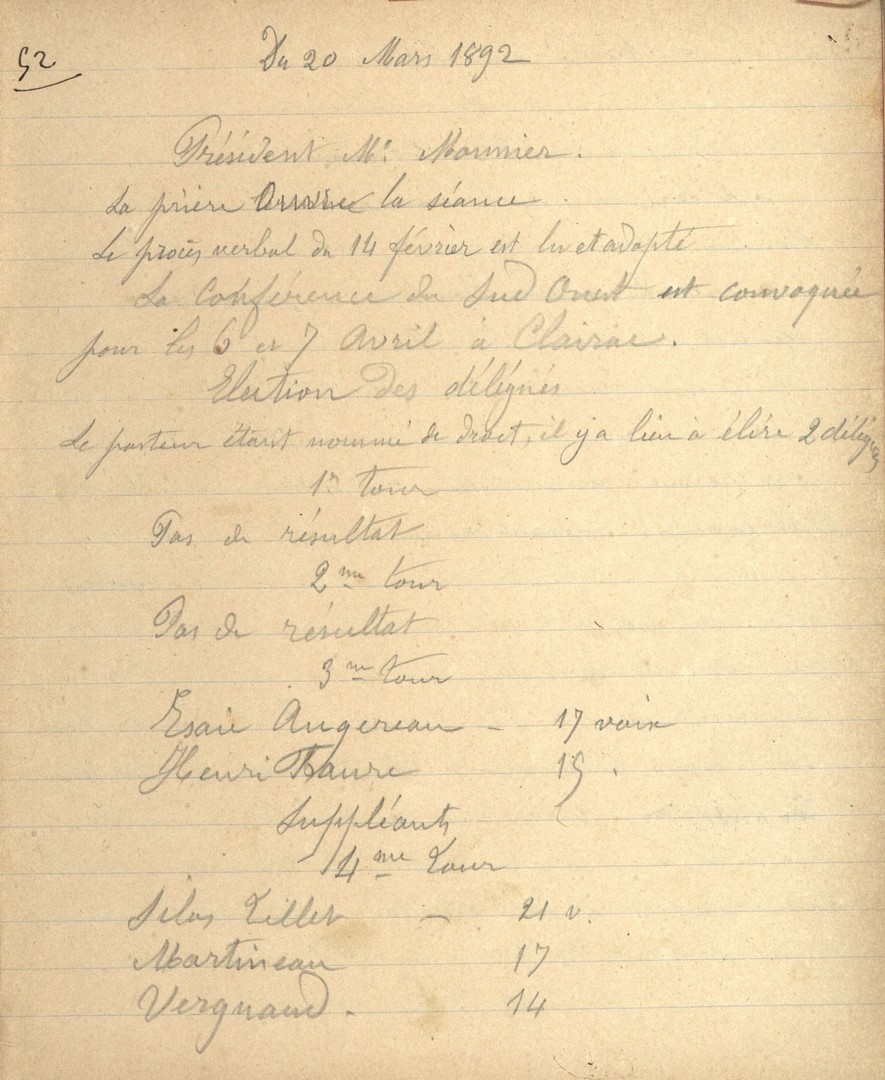 52
Du 20 Mars 1892
Président Mr. Monnier.
La prière ouvre la séance
Le procès verbal du 14 février est lu et adopté
La Conférence du Sud Ouest est convoquée
pour les 6 et 7 Avril à Clairac.
Election des délégués
Le pasteur étant nommé de droit, il y a lieu à élire 2 délégués
1er tour
Pas de résultat
2me tour
Pas de résultat
3me tour
Esaïe Augereau – 17 voix
Henri Faure 15.
Suppléants
4me tour
Silas Lillet – 21 v.
Martineau 17
Vergnaud. 14